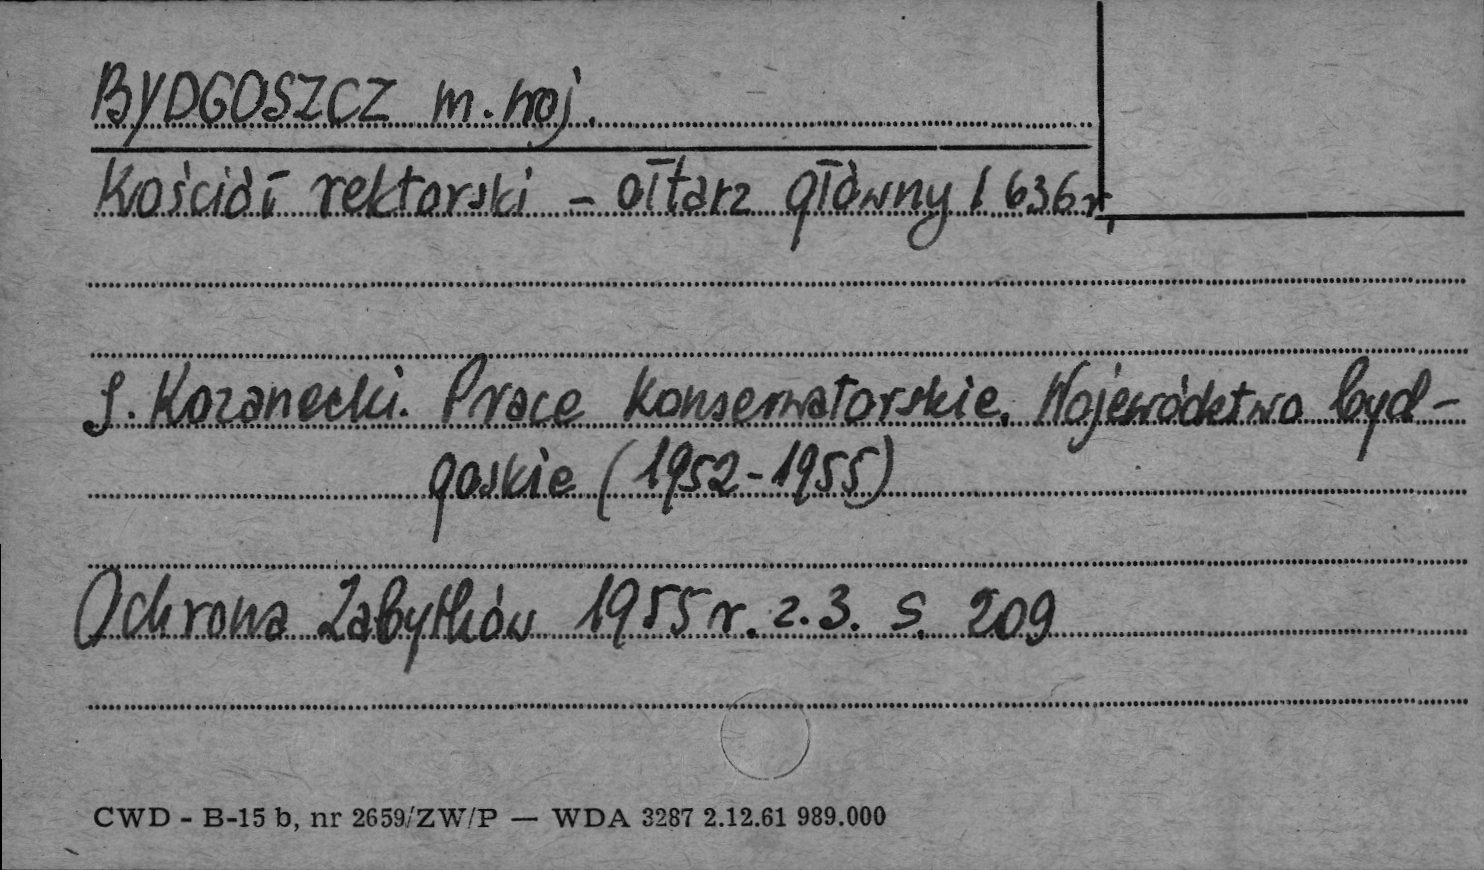 BYDGOSZCZ m. woj.
Kościół rektorski - ołtarz główny 1636 r.
J. Kozanecki. Prace Konserwatorskie. Województwo byd-
goskie (1952-1955)
Ochrona Zabytków 1955 r. z. 3. s. 209
CWD - B-15 b, nr 2659/ZW/P — WDA 3287 2.12.61 989.000